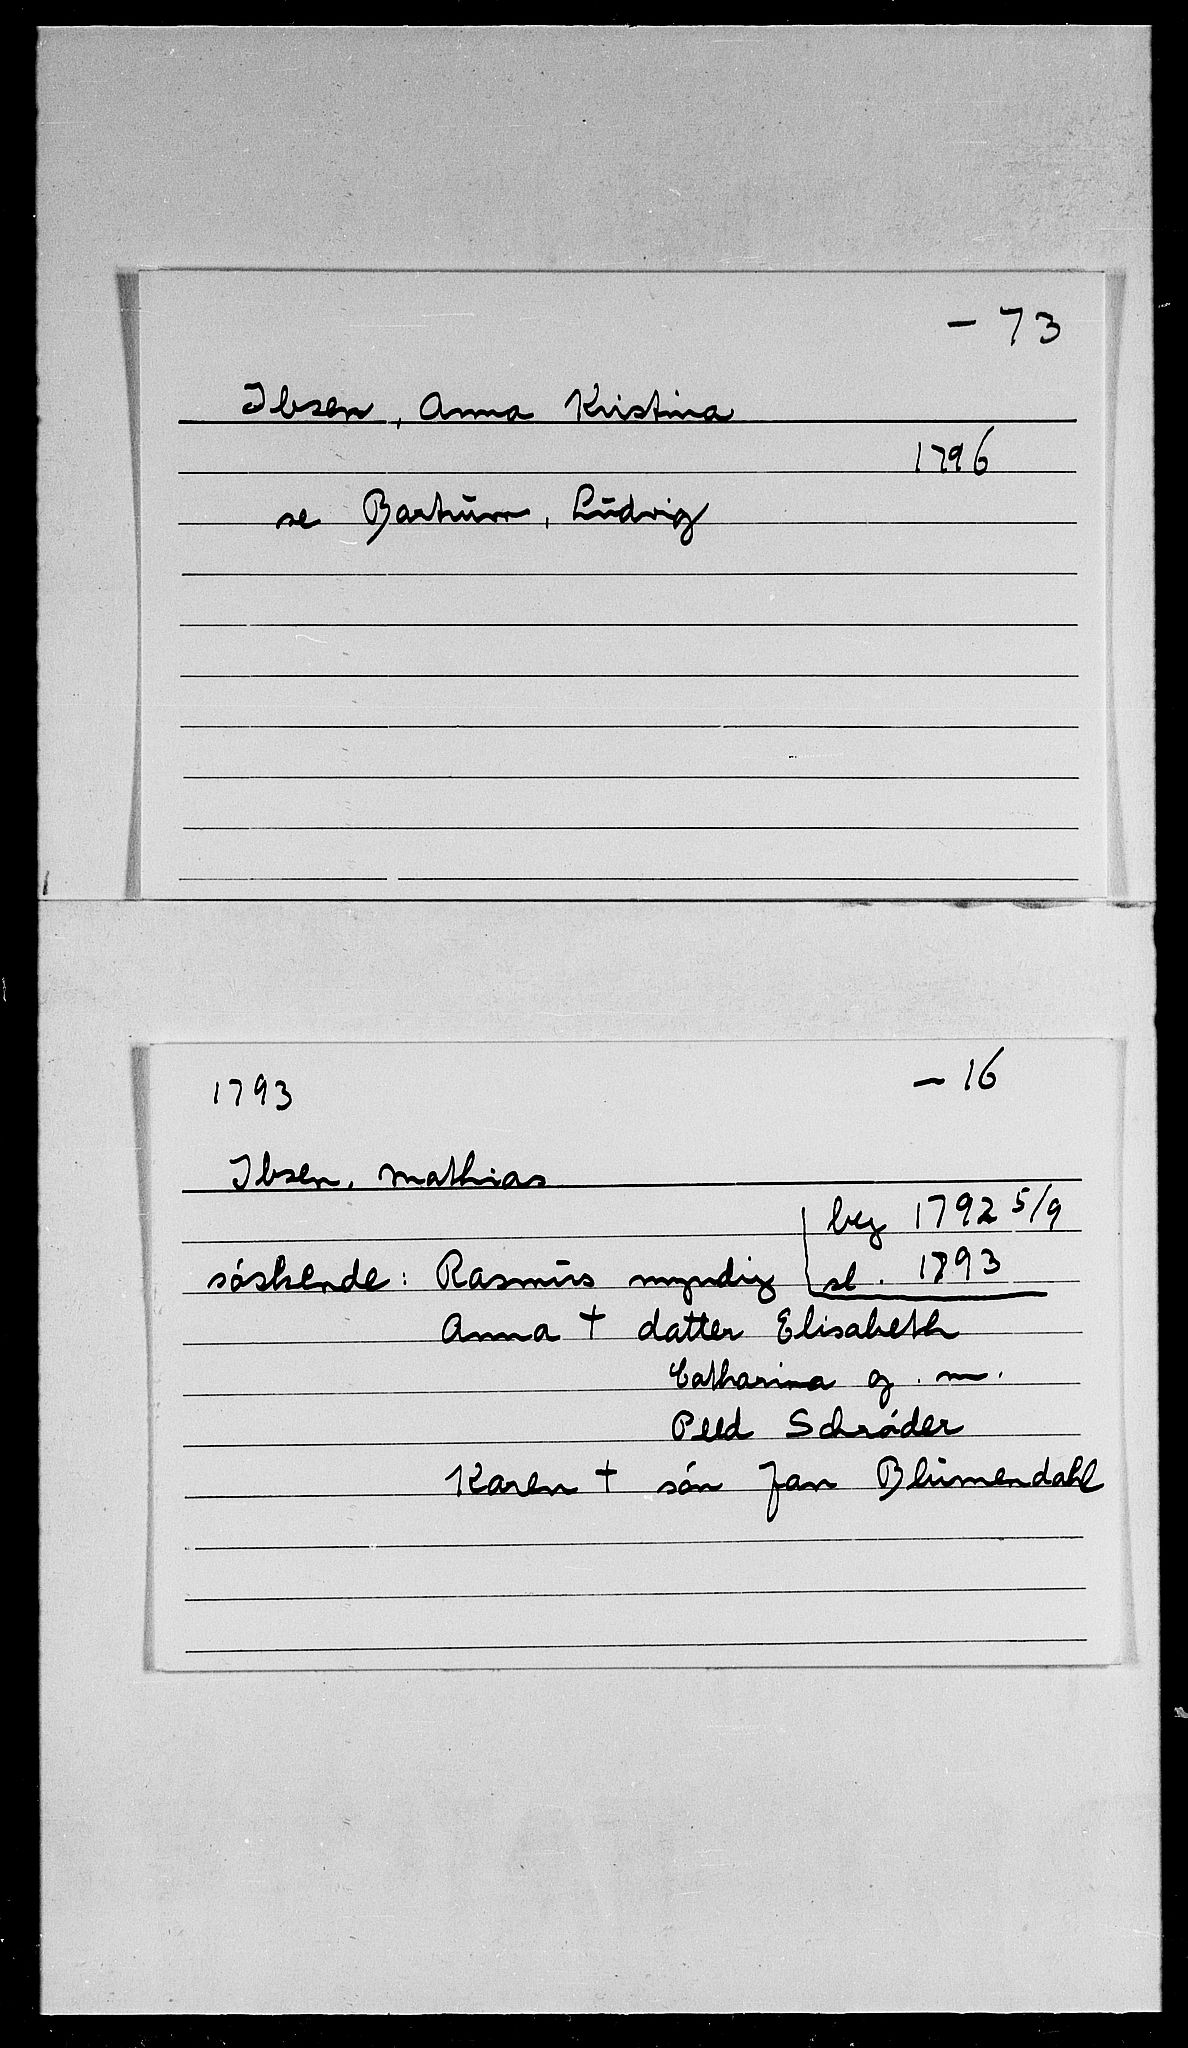 - 73
Ibsen, Anna Kristina
1796
se Bartum, Ludvig
1793
- 16
Ibsen, Mathias
beg 1792 5/9
söskende: Rasmus myndig sl. 1793
Anna † datter Elisabeth
Catharina g. m.
Peed Schröder
Karen † sön Jan Blumendahl